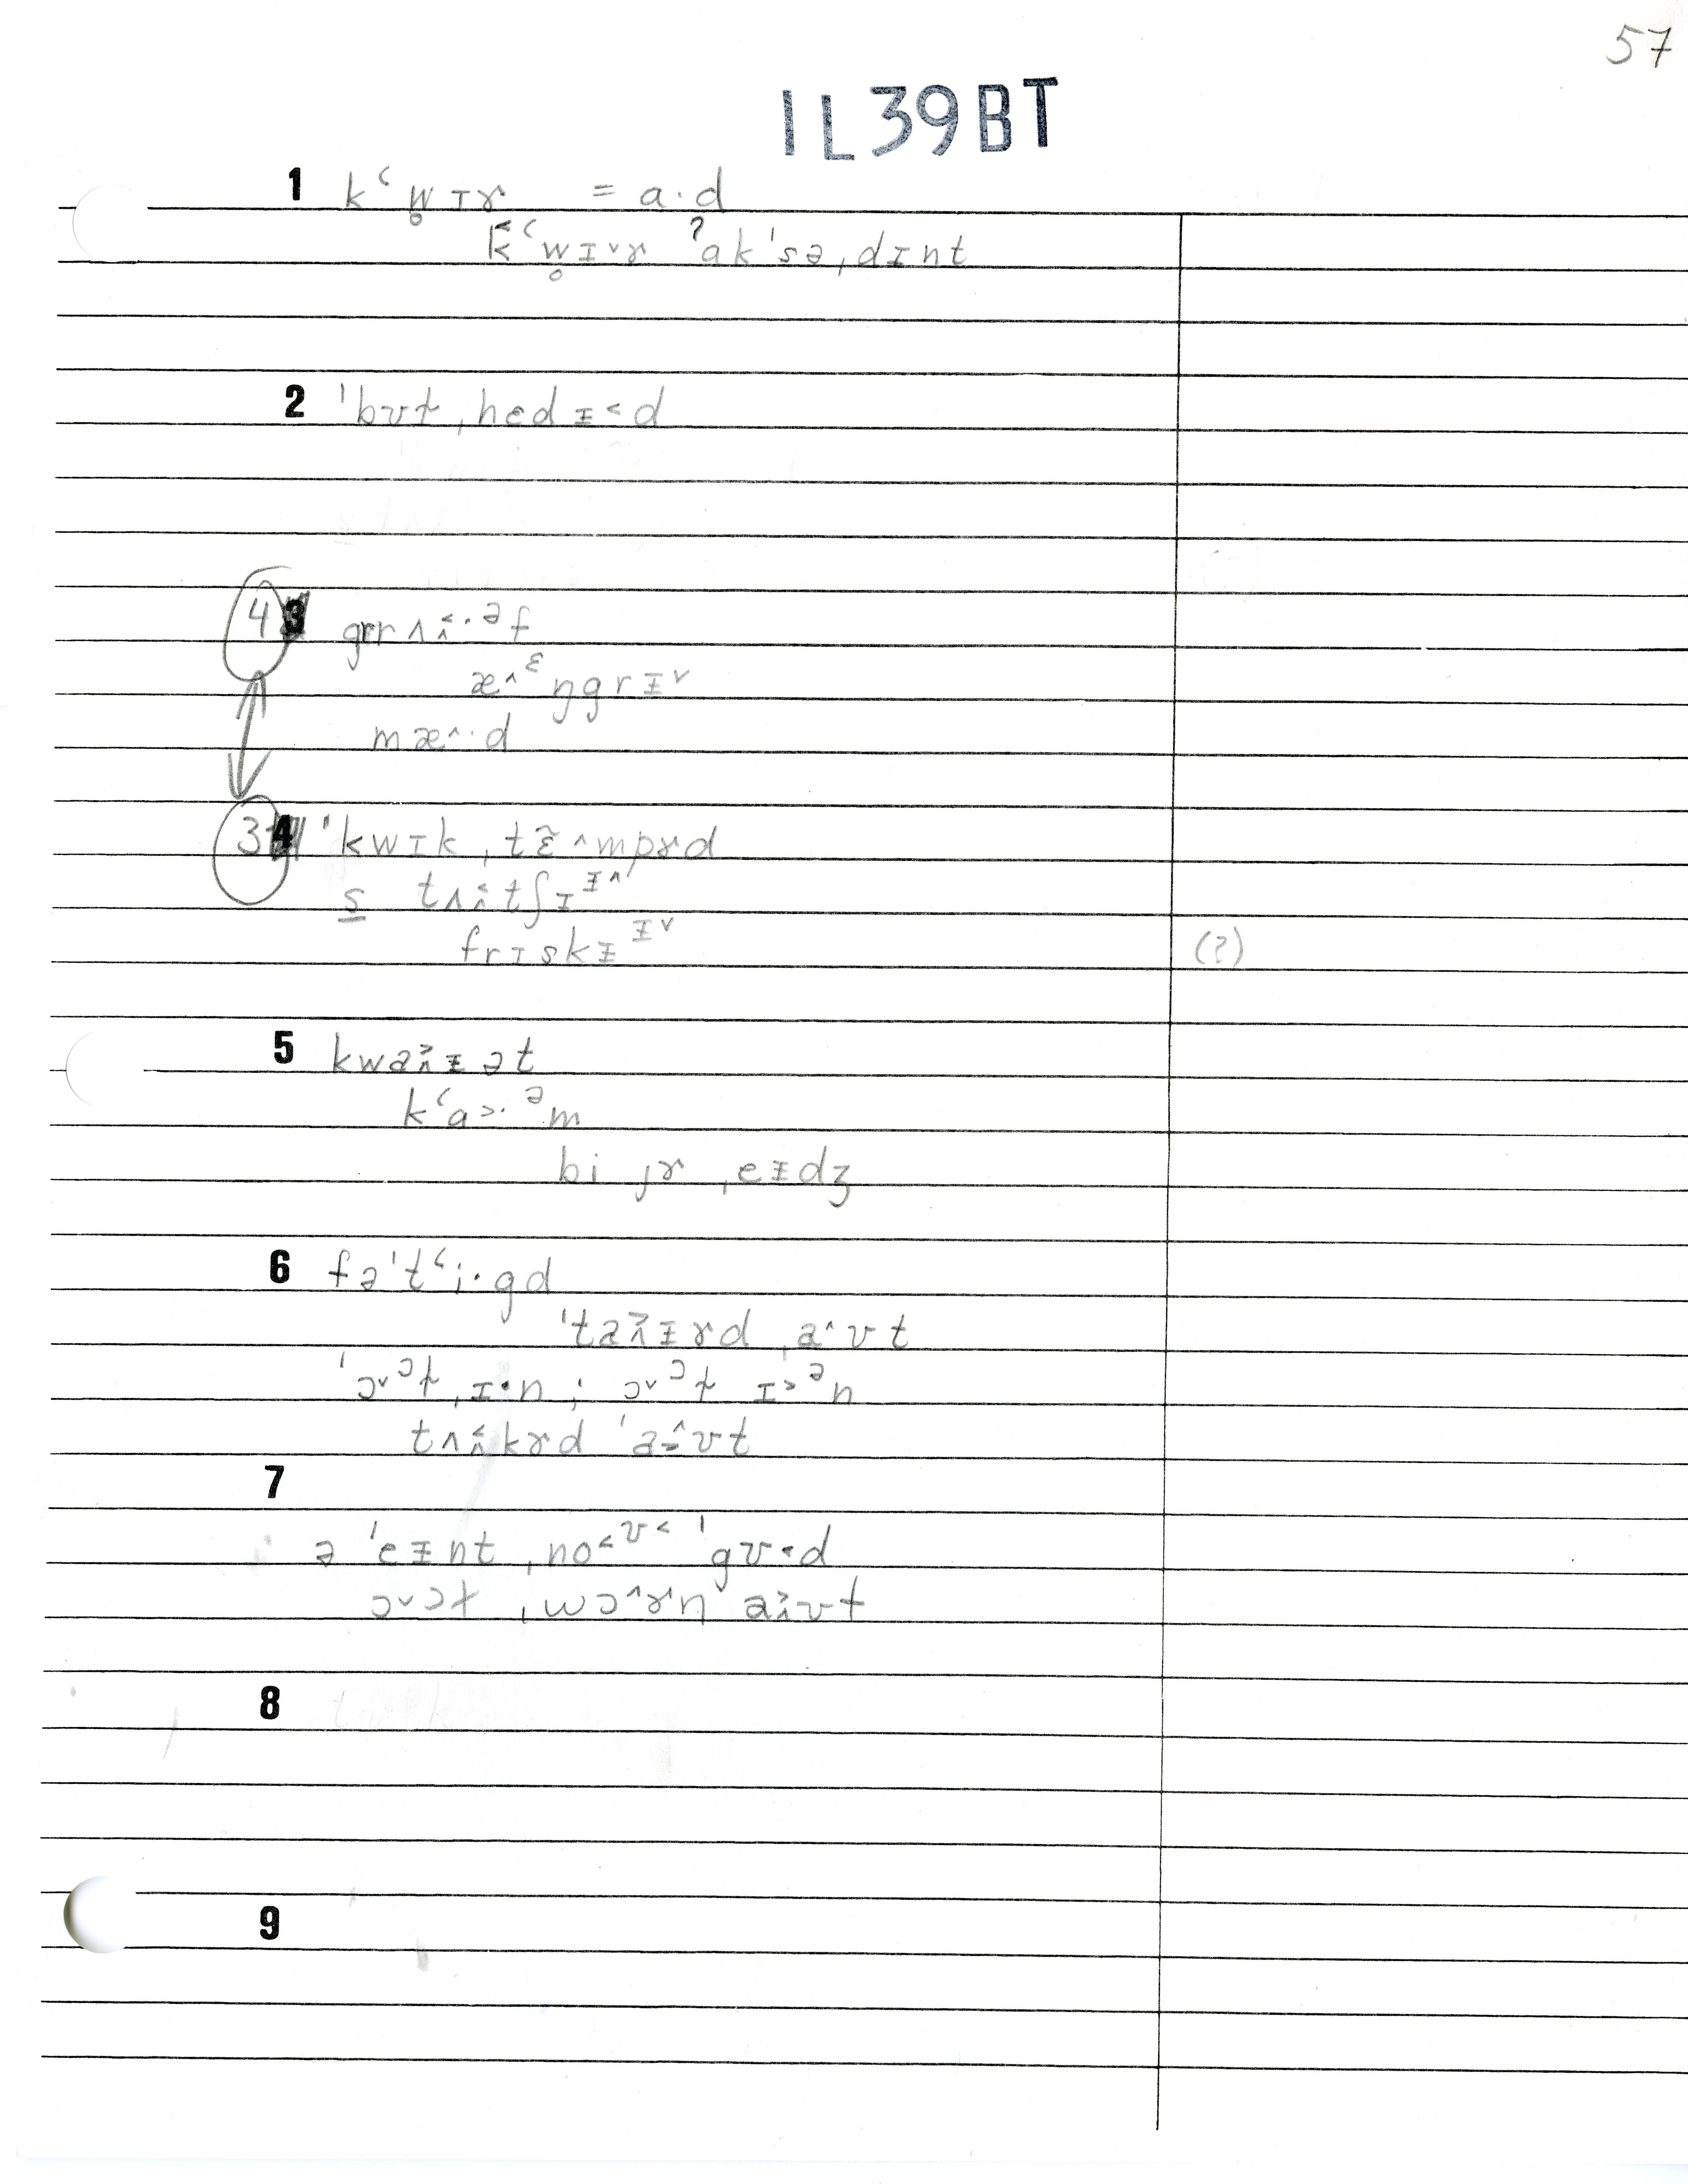 57
IL39BT
1 kʻw̥ɪɤ = a·d
k̆ʻw̥ɪ˅ɤ ʔak'sə,dɪnt
2 'bʊt,hɛdᵻ˂d
4 3 grrʌɪ̯˂·ᵊf
æ˄ᵋŋgrᵻ˅
mæ˄·d
3 4 'kwɪk,tɛ̃˄mpɤd
s tʌɪ̯˂tʃɪᵻ˄
frɪskᵻᵻ˅ (?)
5 kwaɪ̯˃ᵻət
kʻɑ˃·ᵊm
bi jɤ ,eᵻdʒ
6 fə'tʻi·gd
'taɪ̯˃ᵻɤd ,a˄ʊt
'ɔ˅ᵓt,ɪ·n ; ɔ˅ᵓt ɪ˃ᵊn
tʌɪ̯˂kɤd 'a˄ʊt
7
ə 'eᵻnt ,no˂ᶷ˂ 'gʊ·d
ɔ˅ɔt ,wɔ˄ɤn a˃ʊt
8
9